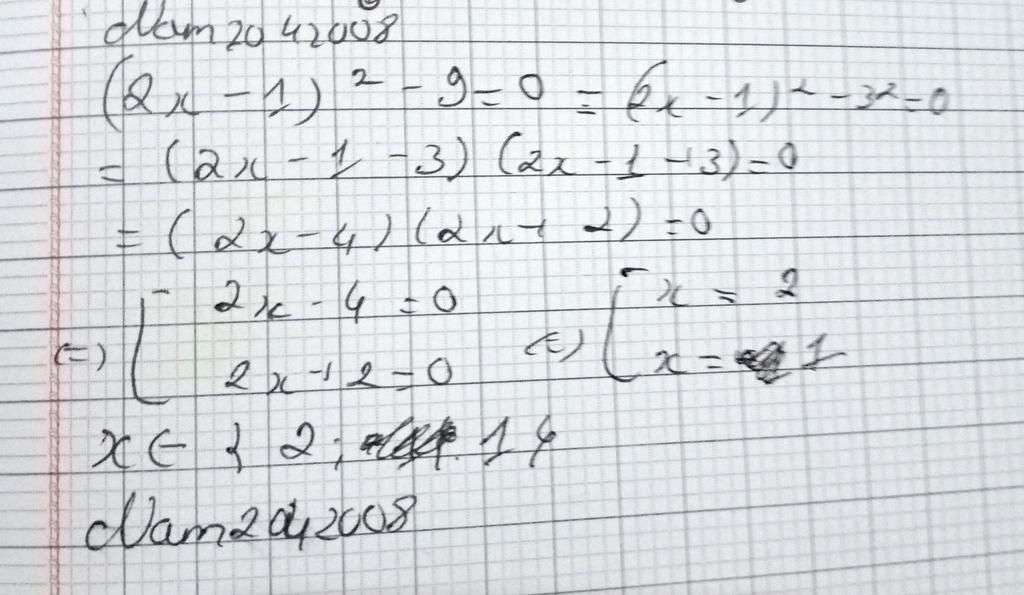 Nam2042008
(2x - 1)² - 9 = 0 = (2x - 1)² - 3² = 0
= (2x - 1 - 3) (2x - 1 + 3) = 0
= (2x - 4) (2x + 2) = 0
<=> [ 2x - 4 = 0 <=> [ x = 2
2x + 2 = 0 x = 1
x ∈ { 2 ; 1 }
Nam2042008